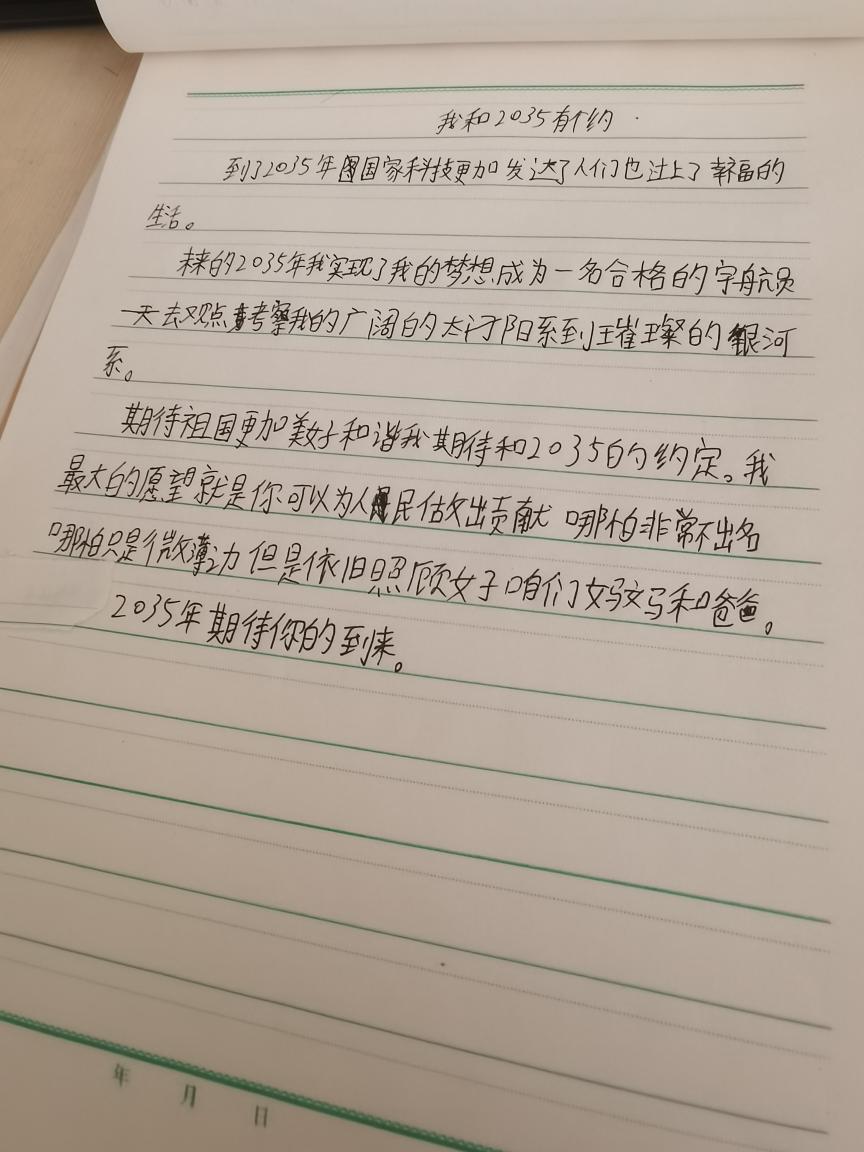 我和2035有个约
到了2035年国家科技更加发达了人们也过上了幸福的
生活。
未来的2035年我实现了我的梦想成为一名合格的宇航员
一天去观点考察我的广阔的太阳系到璀璨的银河
系。
期待祖国更加美好和谐我期待和2035的约定。我
最大的愿望就是你可以为人民做出贡献哪怕非常不出名
哪怕只是个微薄之力但是依旧照顾好咱们妈妈和爸爸。
2035年期待你的到来。
年 月 日